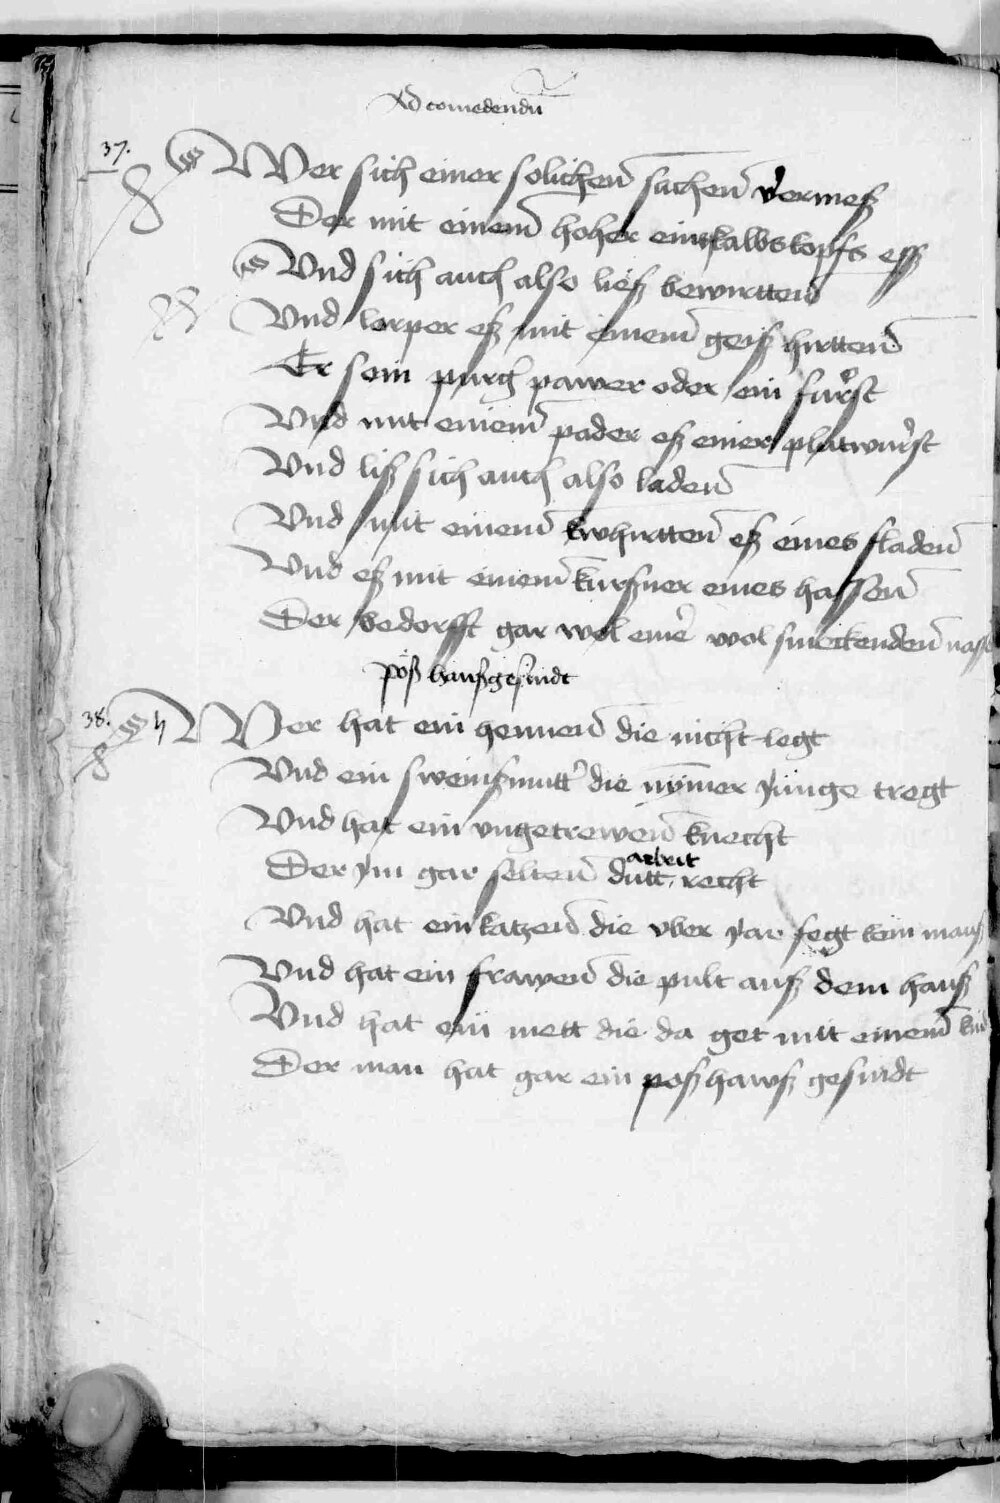 Ad comedendū
37.
Wer sich einer solichen sachen vermeß
Der mit einem hoher eins kalbskopfs eß
Vnd sich auch also ließ bewirtten
Vnd lorper eß mit einem geiß hirtten
Er sein purg pawer oder ein fürst
Vnd mit einem pader eß einer platwürst
Vnd liß sich auch also laden
Vnd mit einem kwhirtten eß eines fladen
Vnd eß mit einem kürsner eines hassen
Der bedorfft gar wol einer wol smeckenden
pöß haußgesindt
38.
Wer hat ein hennen die nicht legt
Vnd ein sweinßmutter die nymer Junge tregt
Vnd hat ein vngetrewen knecht
arbeit
Der Jm gar selten dutt recht
Vnd hat ein katzen die vber Jar fegt kein mauß
Vnd hat ein frawen die pult auß dem hauß
Vnd hat ein mett die da get mit einem
Der man hat gar ein poß hawß gesindt